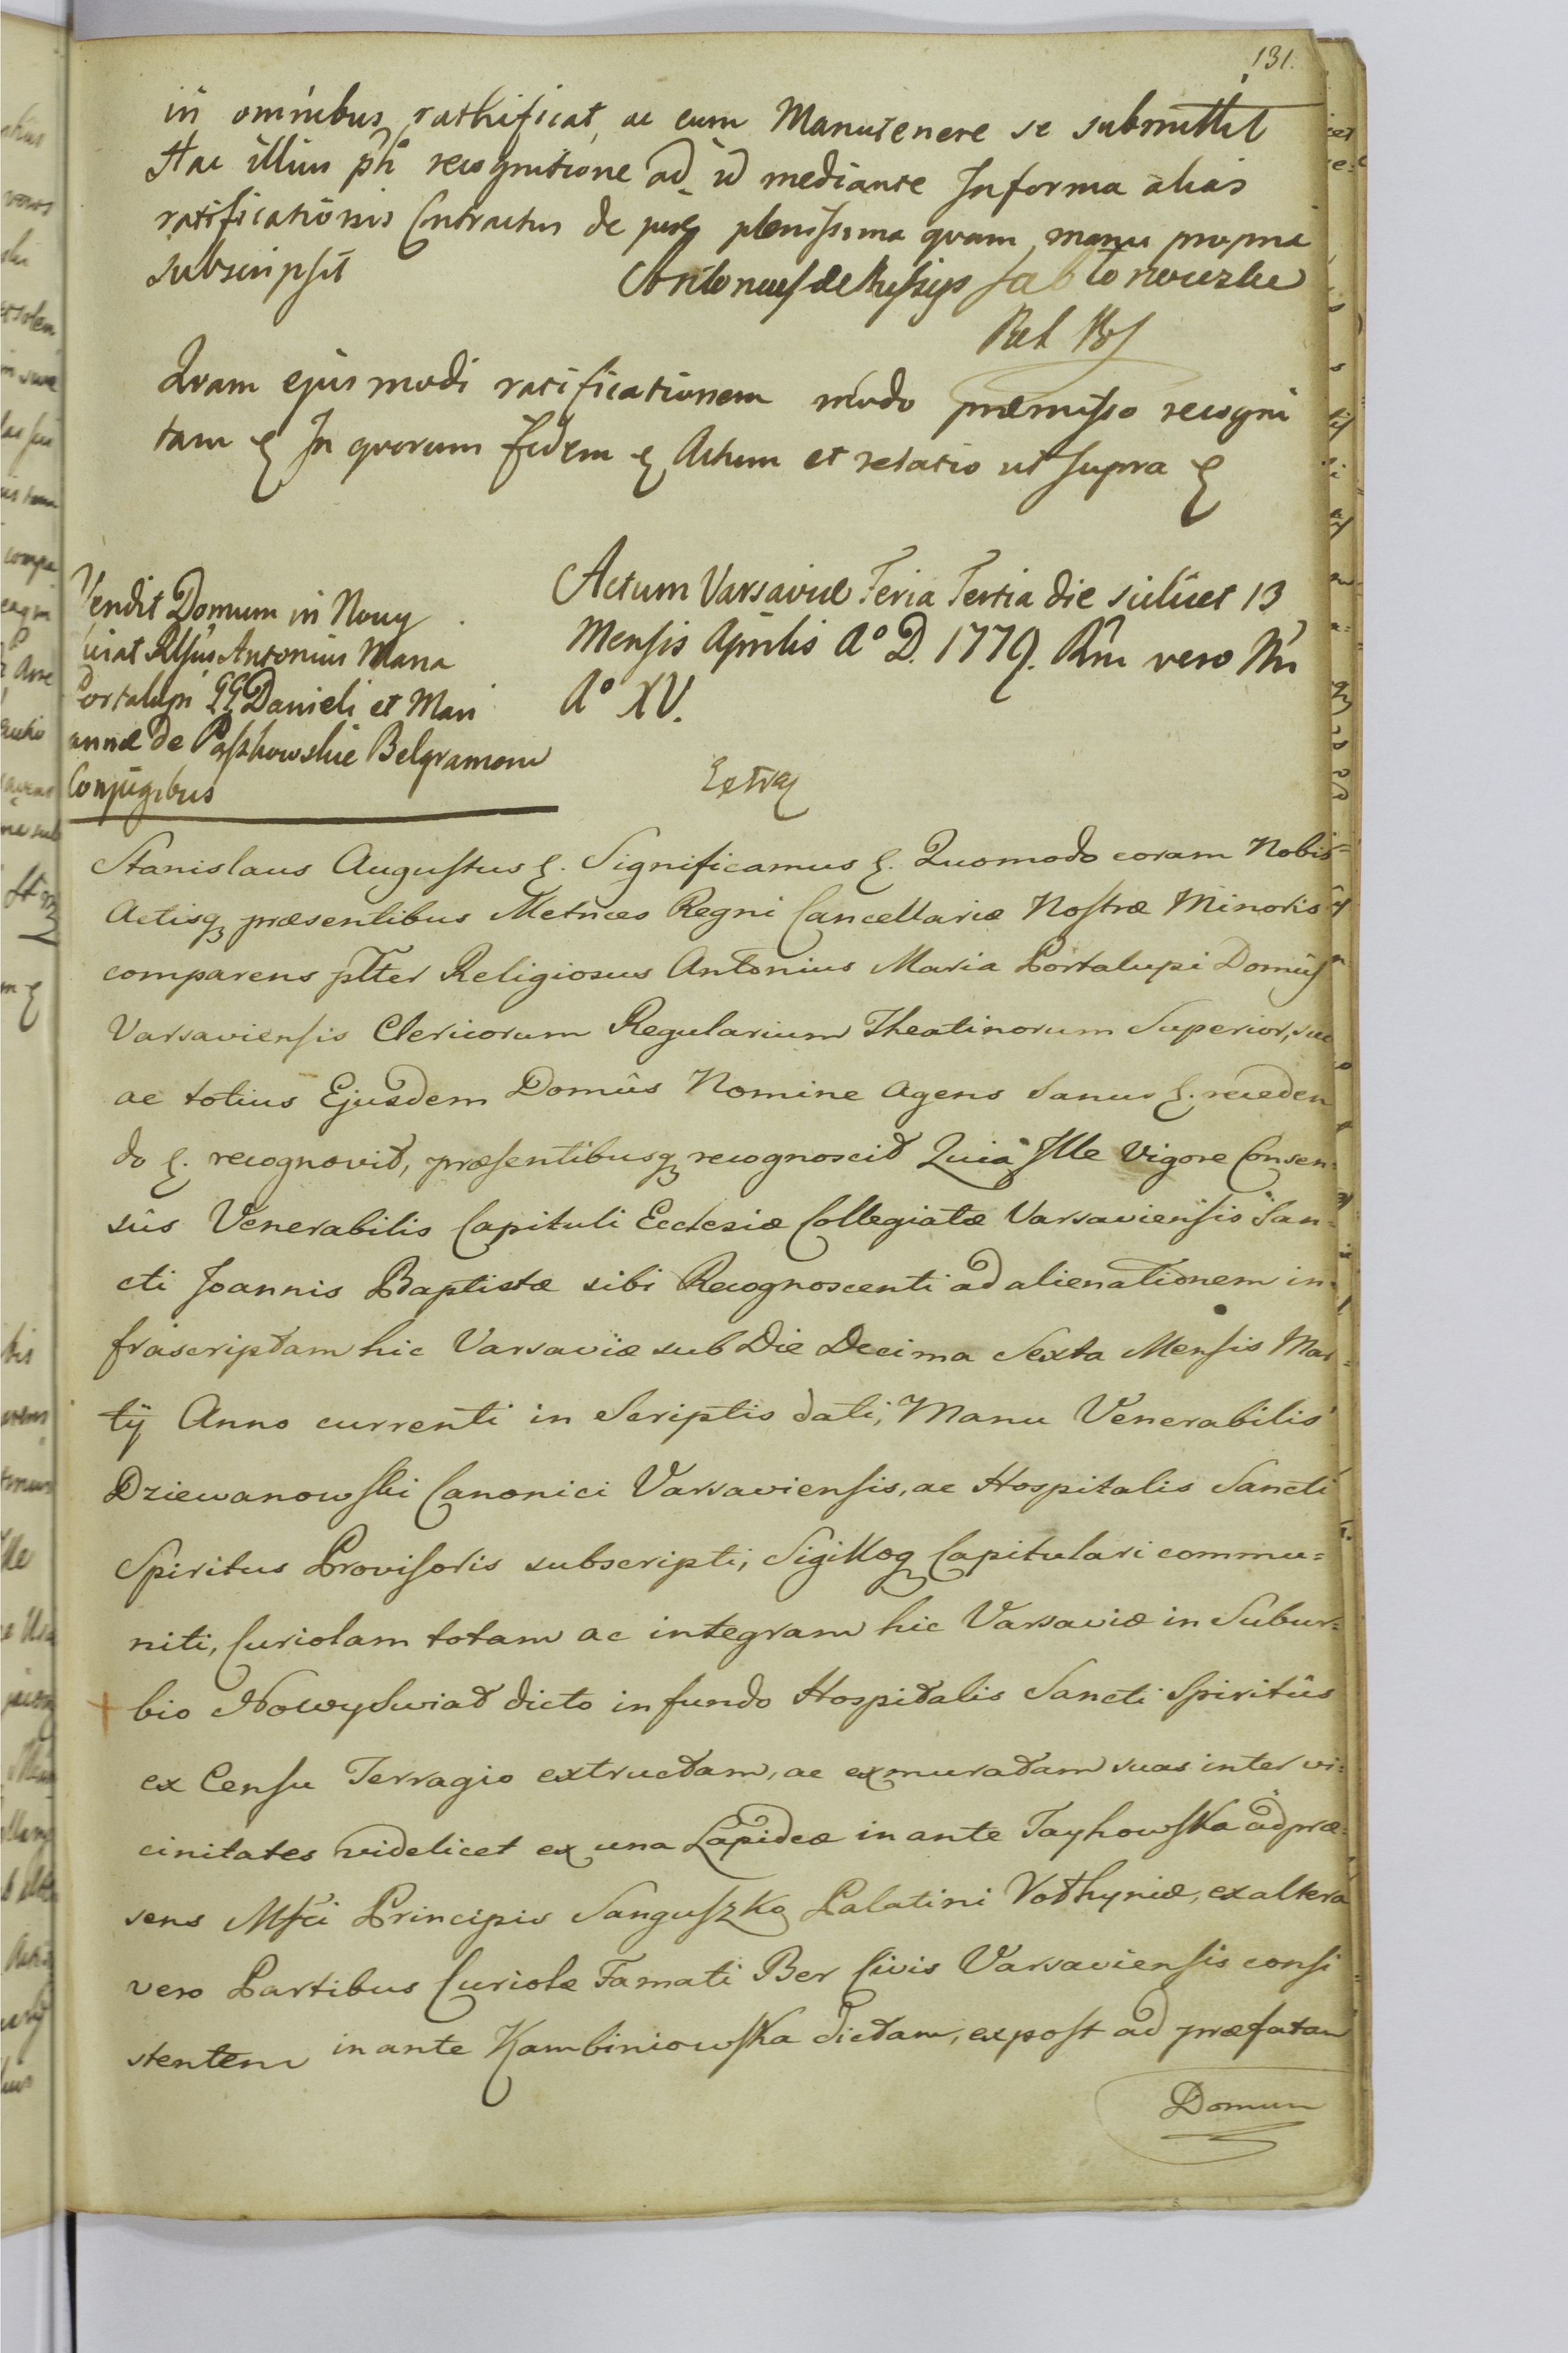 131.
in omnibus rathificat, ac eum Manutenere se submittit
Hac illius recognitione ad id mediante Informa alias
ratificationis Contractus de plenissima quam manu propria
subscripsit
Quam ejusmodi ratificationem modo præmisso recogni
tam & In quorum fidem & Actum et relatio ut supra &
Vendit Domum in Nowy
Swiat Rlsus Antonius Maria
Portalupi GG Danieli et Mari
annæ de Paszkowskie Belgramoni
Conjugibus
Actum Varsaviæ Feria Tertia die scilicet 13
Mensis Aprilis A° D. 1779. Rni vero Nri
A° XV.
Extra
Stanislaus Augustus &. Significamus &. Quomodo coram Nobis
Actisq præsentibus Metrices Regni Cancellariæ Nostræ Minoris
comparens pltter Religiosus Antonius Maria Portalupi Domûs
Varsaviensis Clericorum Regularium Theatinorum Superior, suo
ac totius Ejusdem Domûs Nomine Agens Sanus &. receden
do &. recognovit, præsentibusq recognoscit Quia Ille Vigore Consen=
sûs Venerabilis Capituli Ecclesiæ Collegiatæ Varsaviensis San=
cti Joannis Baptistæ sibi Recognoscenti ad alienationem in=
frascriptam hic Varsaviæ sub Die Decima Sexta Mensis Mar=
tÿ Anno currenti in Scriptis dati, Manu Venerabilis
Dziewanowski Canonici Varsaviensis, ac Hospitalis Sancti
Spiritus Provisoris subscripti, Sigilloq Capitulari commu=
niti, Curiolam totam ac integram hic Varsaviæ in Subur=
bio Nowy Swiat dicto in fundo Hospitalis Sancti Spiritûs
ex Censu Terragio extructam, ac exmuratam suas inter vi=
cinitates videlicet ex una Lapideæ inante Tayhowska ad præ=
sens Mfci Principis Sanguszko Palatini Vołhyniæ, ex altera
vero Partibus Curiolæ Famati Ber Civis Varsaviensis consi
stentem inante Kambiniowska dictam, expost ad præfatam
Domum